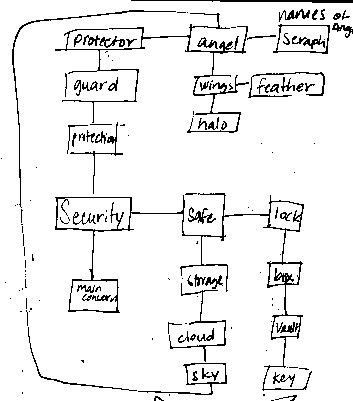 names of
protector
angel
Seraph
guard
wings
feather
halo
protection
Security
Safe
lock
main
concern
storage
box
cloud
vault
sky
key